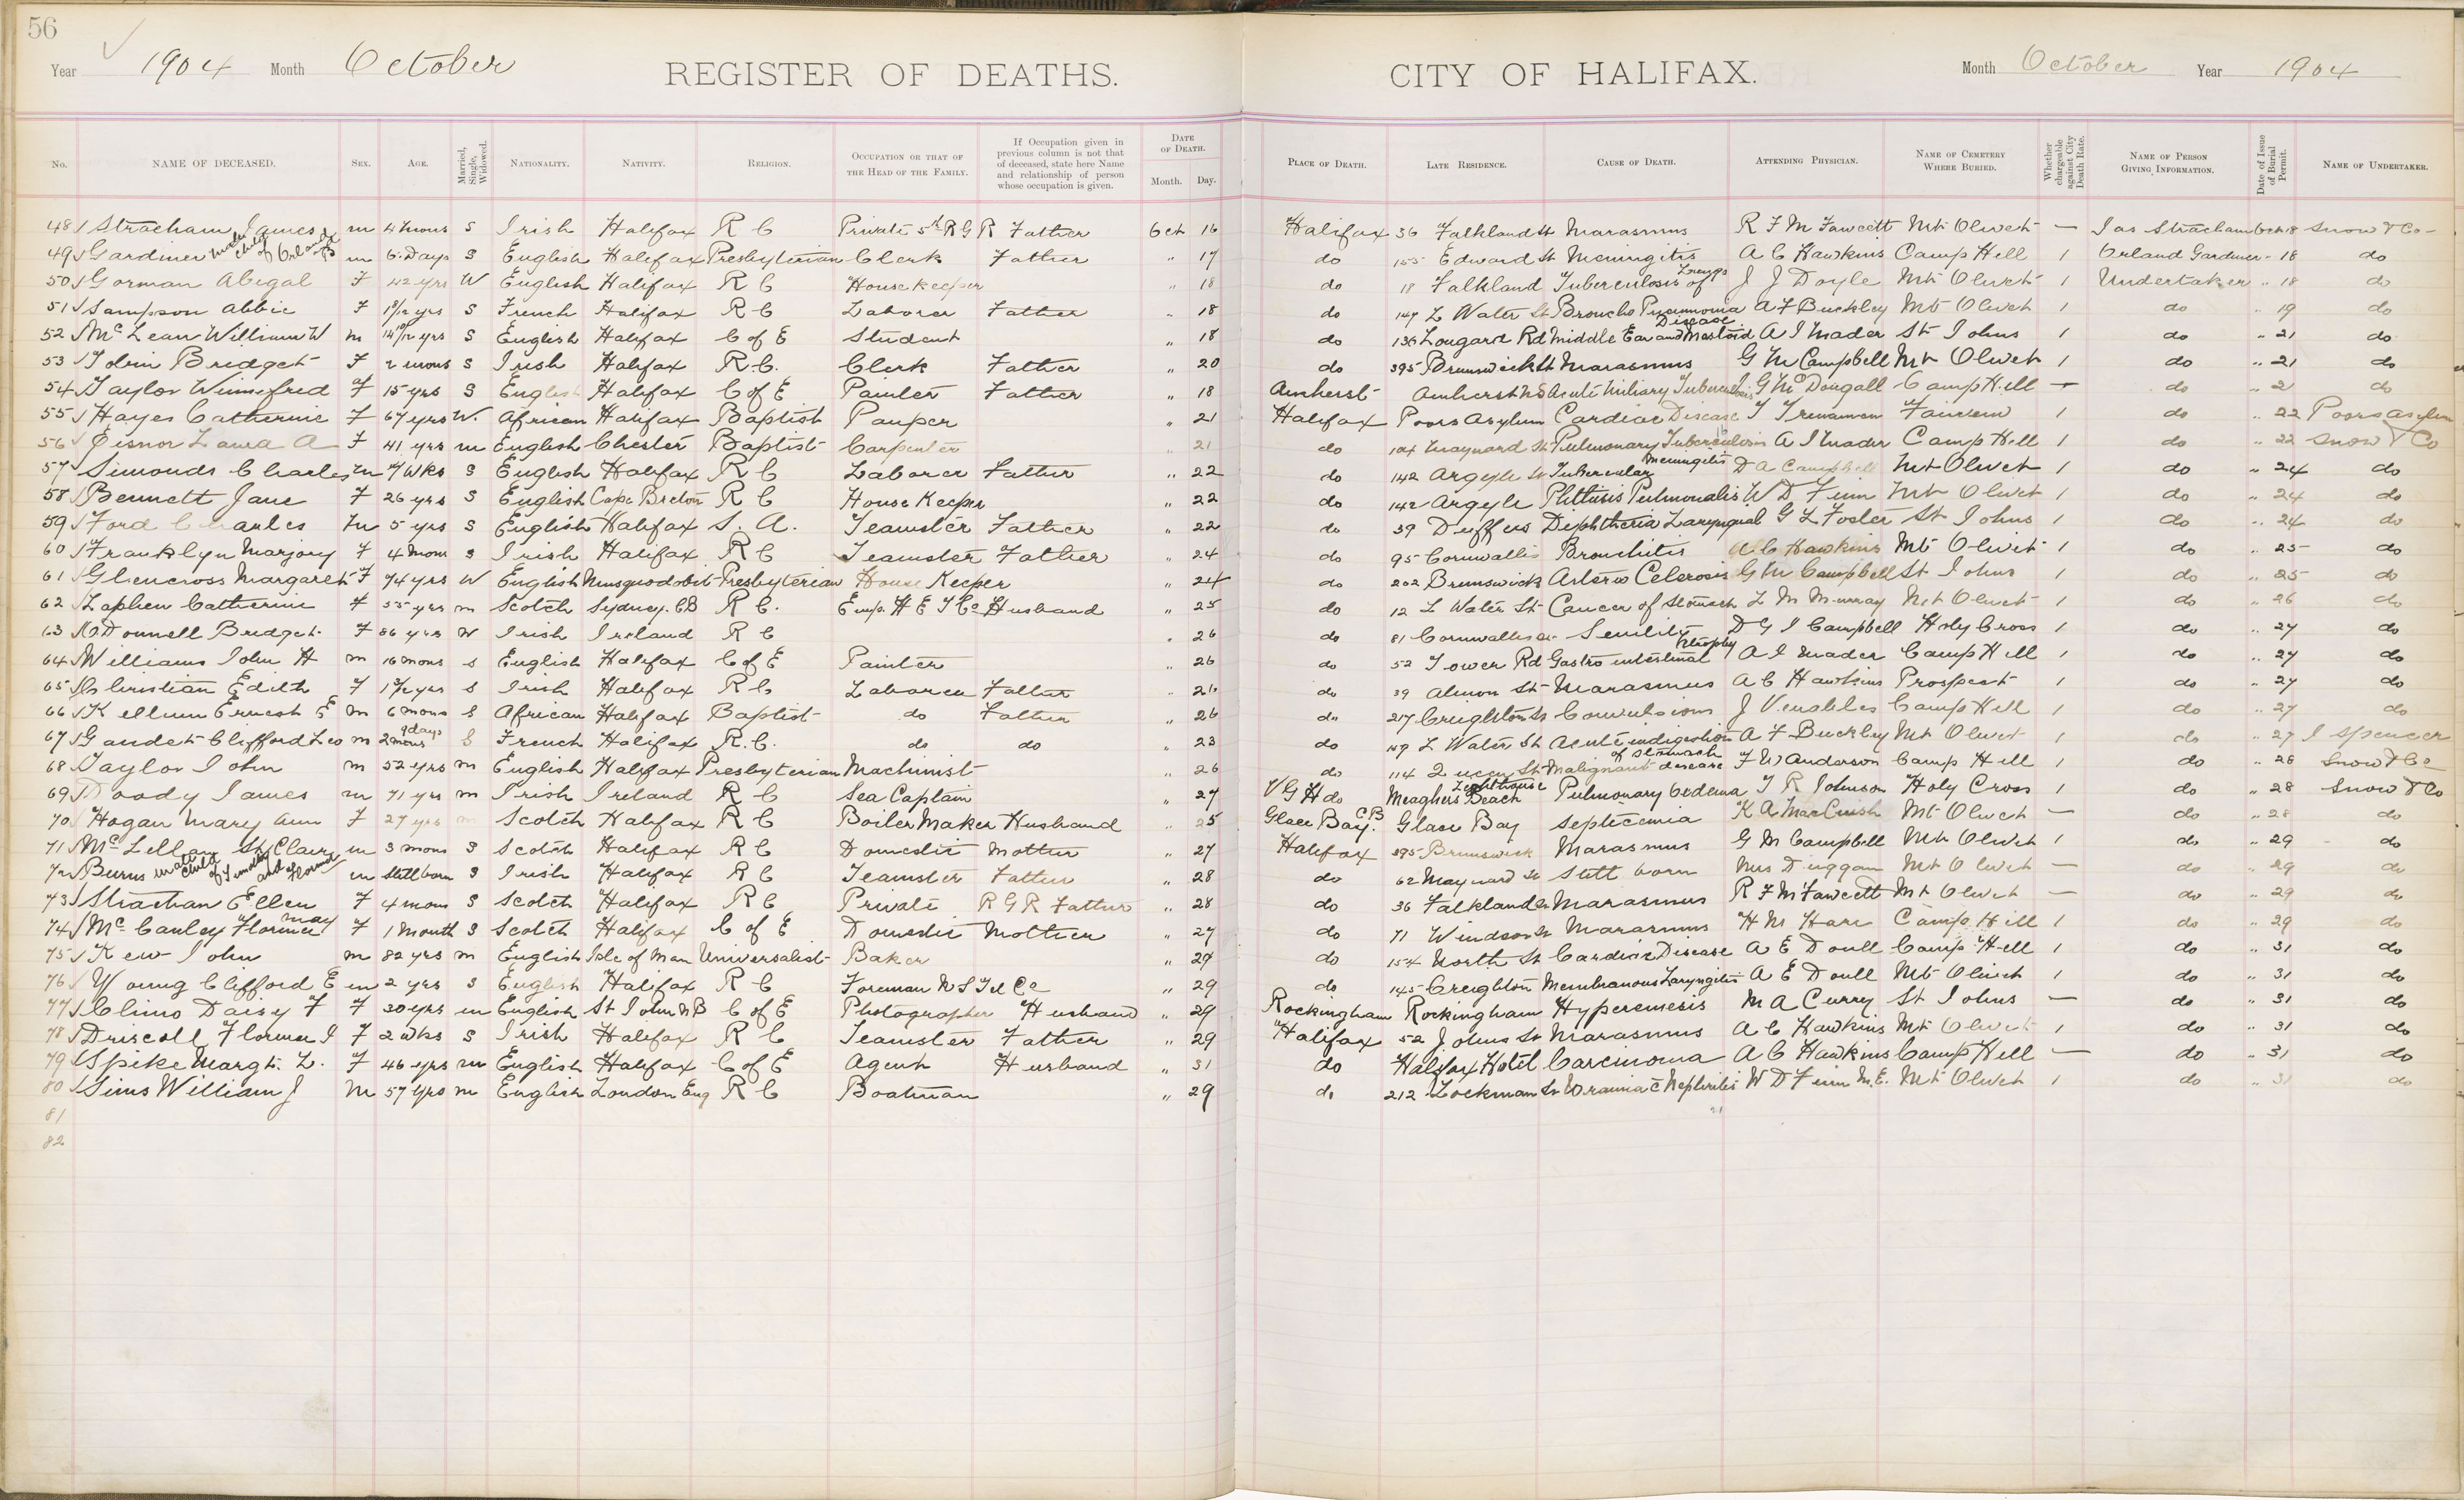 56
Year 1904 Month October REGISTER OF DEATHS. CITY OF HALIFAX. Month October Year 1904
No. NAME OF DECEASED. SEX. AGE. Married, Single, Widowed. NATIONALITY. NATIVITY. RELIGION. OCCUPATION OR THAT OF THE HEAD OF THE FAMILY. If Occupation given in previous column is not that of deceased, state here Name and relationship of person whose occupation is given. DATE OF DEATH. Month. Day. PLACE OF DEATH. LATE RESIDENCE. CAUSE OF DEATH. ATTENDING PHYSICIAN. NAME OF CEMETERY WHERE BURIED. Whether chargeable against City Death Rate. NAME OF PERSON GIVING INFORMATION. Date of Issue of Burial Permit. NAME OF UNDERTAKER.
48 Stracham James m 4 mons S Irish Halifax R C Private 5th R G R Father Oct 16 Halifax 36 Falkland St Marasmus R F M Fawcett Mt Olivet — Jas Stracham Oct 18 Snow & Co
49 Gardiner child of Orland B m 6 Days S English Halifax Presbyterian Clerk Father " 17 do 155 Edward St Meningitis A C Hawkins Camp Hill 1 Orland Gardiner " 18 do
50 Gorman Abegal F 42 yrs W English Halifax R C House keeper " 18 do 18 Falkland Tuberculosis of Larynx J J Doyle Mt Olivet 1 Undertaker " 18 do
51 Sampson Abbie F S French Halifax R C Laborer Father " 18 do 147 L Water St Broncho Pneumonia A F Buckley Mt Olivet 1 do " 19 do
52 McLean William W m yrs S English Halifax C of E Student " 18 do 136 Longard Rd Middle Ear and Mastoid Disease A I Mader St Johns 1 do " 21 do
53 Tobin Bridget F 2 mons S Irish Halifax R C. Clerk Father " 20 do 395 Brunswick St Marasmus G M Campbell Mt Olivet 1 do " 21 do
54 Taylor Winnifred F 15 yrs S English Halifax C of E Painter Father " 18 Amherst Amherst NS Acute Miliary Tuberculosis G McDougall Camp Hill — do " 21 do
55 Hayes Catherine F 67 yrs W. African Halifax Baptist Pauper " 21 Halifax Poors Asylum Cardiac Disease T Trenaman Fairview 1 do " 22 Poors Asylum
56 Eisnor Laura A F 41 yrs m English Chester Baptist Carpenter " 21 do 104 Maynard St Pulmonary Tuberculosis A I Mader Camp Hill 1 do " 22 Snow & Co
57 Simonds Charles m 7 wks S English Halifax R C Laborer Father " 22 do 142 Argyle St Tubercular Meningitis D A Campbell Mt Olivet 1 do " 24 do
58 Bennett Jane F 26 yrs S English Cape Breton R C House Keeper " 22 do 142 Argyle Phthisis Pulmonalis W D Finn Mt Olivet 1 do " 24 do
59 Ford Charles m 5 yrs S English Halifax S. A. Teamster Father " 22 do 39 Duffus Diphtheria Laryngial G L Foster St Johns 1 do " 24 do
60 Franklyn Marjory F 4 mons S Irish Halifax R C Teamster Father " 24 do 95 Cornwallis Bronchitis A C Hawkins Mt Olivet 1 do " 25 do
61 Glencross Margaret F 74 yrs W English Musquodobit Presbyterian House Keeper " 24 do 202 Brunswick Arterio Celerosis G M Campbell St Johns 1 do " 25 do
62 Laphen Catherine F 55 yrs m Scotch Sydney. CB R C. Emp. H E T Co Husband " 25 do 12 L Water St Cancer of Stomach L M Murray Mt Olivet 1 do " 26 do
63 O'Donnell Bridget F 86 yrs W Irish Ireland R C " 26 do 81 Cornwallis St Senility D G J Campbell Holy Cross 1 do " 27 do
64 Williams John H m 16 mons S English Halifax C of E Painter " 26 do 52 Tower Rd Gastro intestinal Atrophy A I Mader Camp Hill 1 do " 27 do
65 Christian Edith F S Irish Halifax R C Laborer Father " 26 do 39 Almon St Marasmus A C Hawkins Prospect 1 do " 27 do
66 Kellum Ernest E m 6 mons S African Halifax Baptist do Father " 26 do 217 Creighton St Convulsions J Venables Camp Hill 1 do " 27 do
67 Gaudet Clifford Leo m 2 mons 9 days S French Halifax R.C. do do " 23 do 109 L Water St Acute indigestion A F Buckley Mt Olivet 1 do " 27 J Spencer
68 Taylor John m 52 yrs m English Halifax Presbyterian Machinist " 26 do 114 Queen St Malignant disease of Stomach F W Anderson Camp Hill 1 do " 28 Snow & Co
69 Doody James m 71 yrs m Irish Ireland R C Sea Captain " 27 V G H do Meaghers Beach Lighthouse Pulmonary Oedema T R Johnson Holy Cross 1 do " 28 Snow & Co
70 Hogan Mary Ann F 27 yrs m Scotch Halifax R C Boiler Maker Husband " 25 Glace Bay. CB Glace Bay Septicemia K A MacCuish Mt Olivet — do " 28 do
71 McLellan St Clair m 3 mons S Scotch Halifax R C Domestic Mother " 27 Halifax 395 Brunswick Marasmus G M Campbell Mt Olivet 1 do " 29 do
72 Burns child of Timothy and Florence m Still born S Irish Halifax R C Teamster Father " 28 do 62 Maynard St Still born Mrs Duggan Mt Olivet — do " 29 do
73 Strachan Ellen F 4 mons S Scotch Halifax R C Private R G R Father " 28 do 36 Falkland St Marasmus R F M Fawcett Mt Olivet — do " 29 do
74 McCauley Florence May F 1 Month S Scotch Halifax C of E Domestic Mother " 27 do 71 Windsor St Marasmus H M Hare Camp Hill 1 do " 29 do
75 Kew John m 82 yrs m English Isle of Man Universalist Baker " 29 do 154 North St Cardiac Disease A E Doull Camp Hill 1 do " 31 do
76 Young Clifford E m 2 yrs S English Halifax R C Foreman N S Tel Co " 29 do 145 Creighton Membranous Laryngitis A E Doull Mt Olivet 1 do " 31 do
77 Climo Daisy F F 30 yrs m English St John N B C of E Photographer Husband " 29 Rockingham Rockingham Hyperemesis M A Curry St Johns — do " 31 do
78 Driscoll Florence J F 2 wks S Irish Halifax R C Teamster Father " 29 Halifax 52 Johns St Marasmus A C Hawkins Mt Olivet 1 do " 31 do
79 Spike Margt. L. F 46 yrs m English Halifax C of E Agent Husband " 31 do Halifax Hotel Carcinoma A C Hawkins Camp Hill — do " 31 do
80 Sims William J M 57 yrs m English London Eng R C Boatman " 29 do 212 Lockman St Uraemia c Nephritis W D Finn M.E. Mt Olivet 1 do " 31 do
81
82